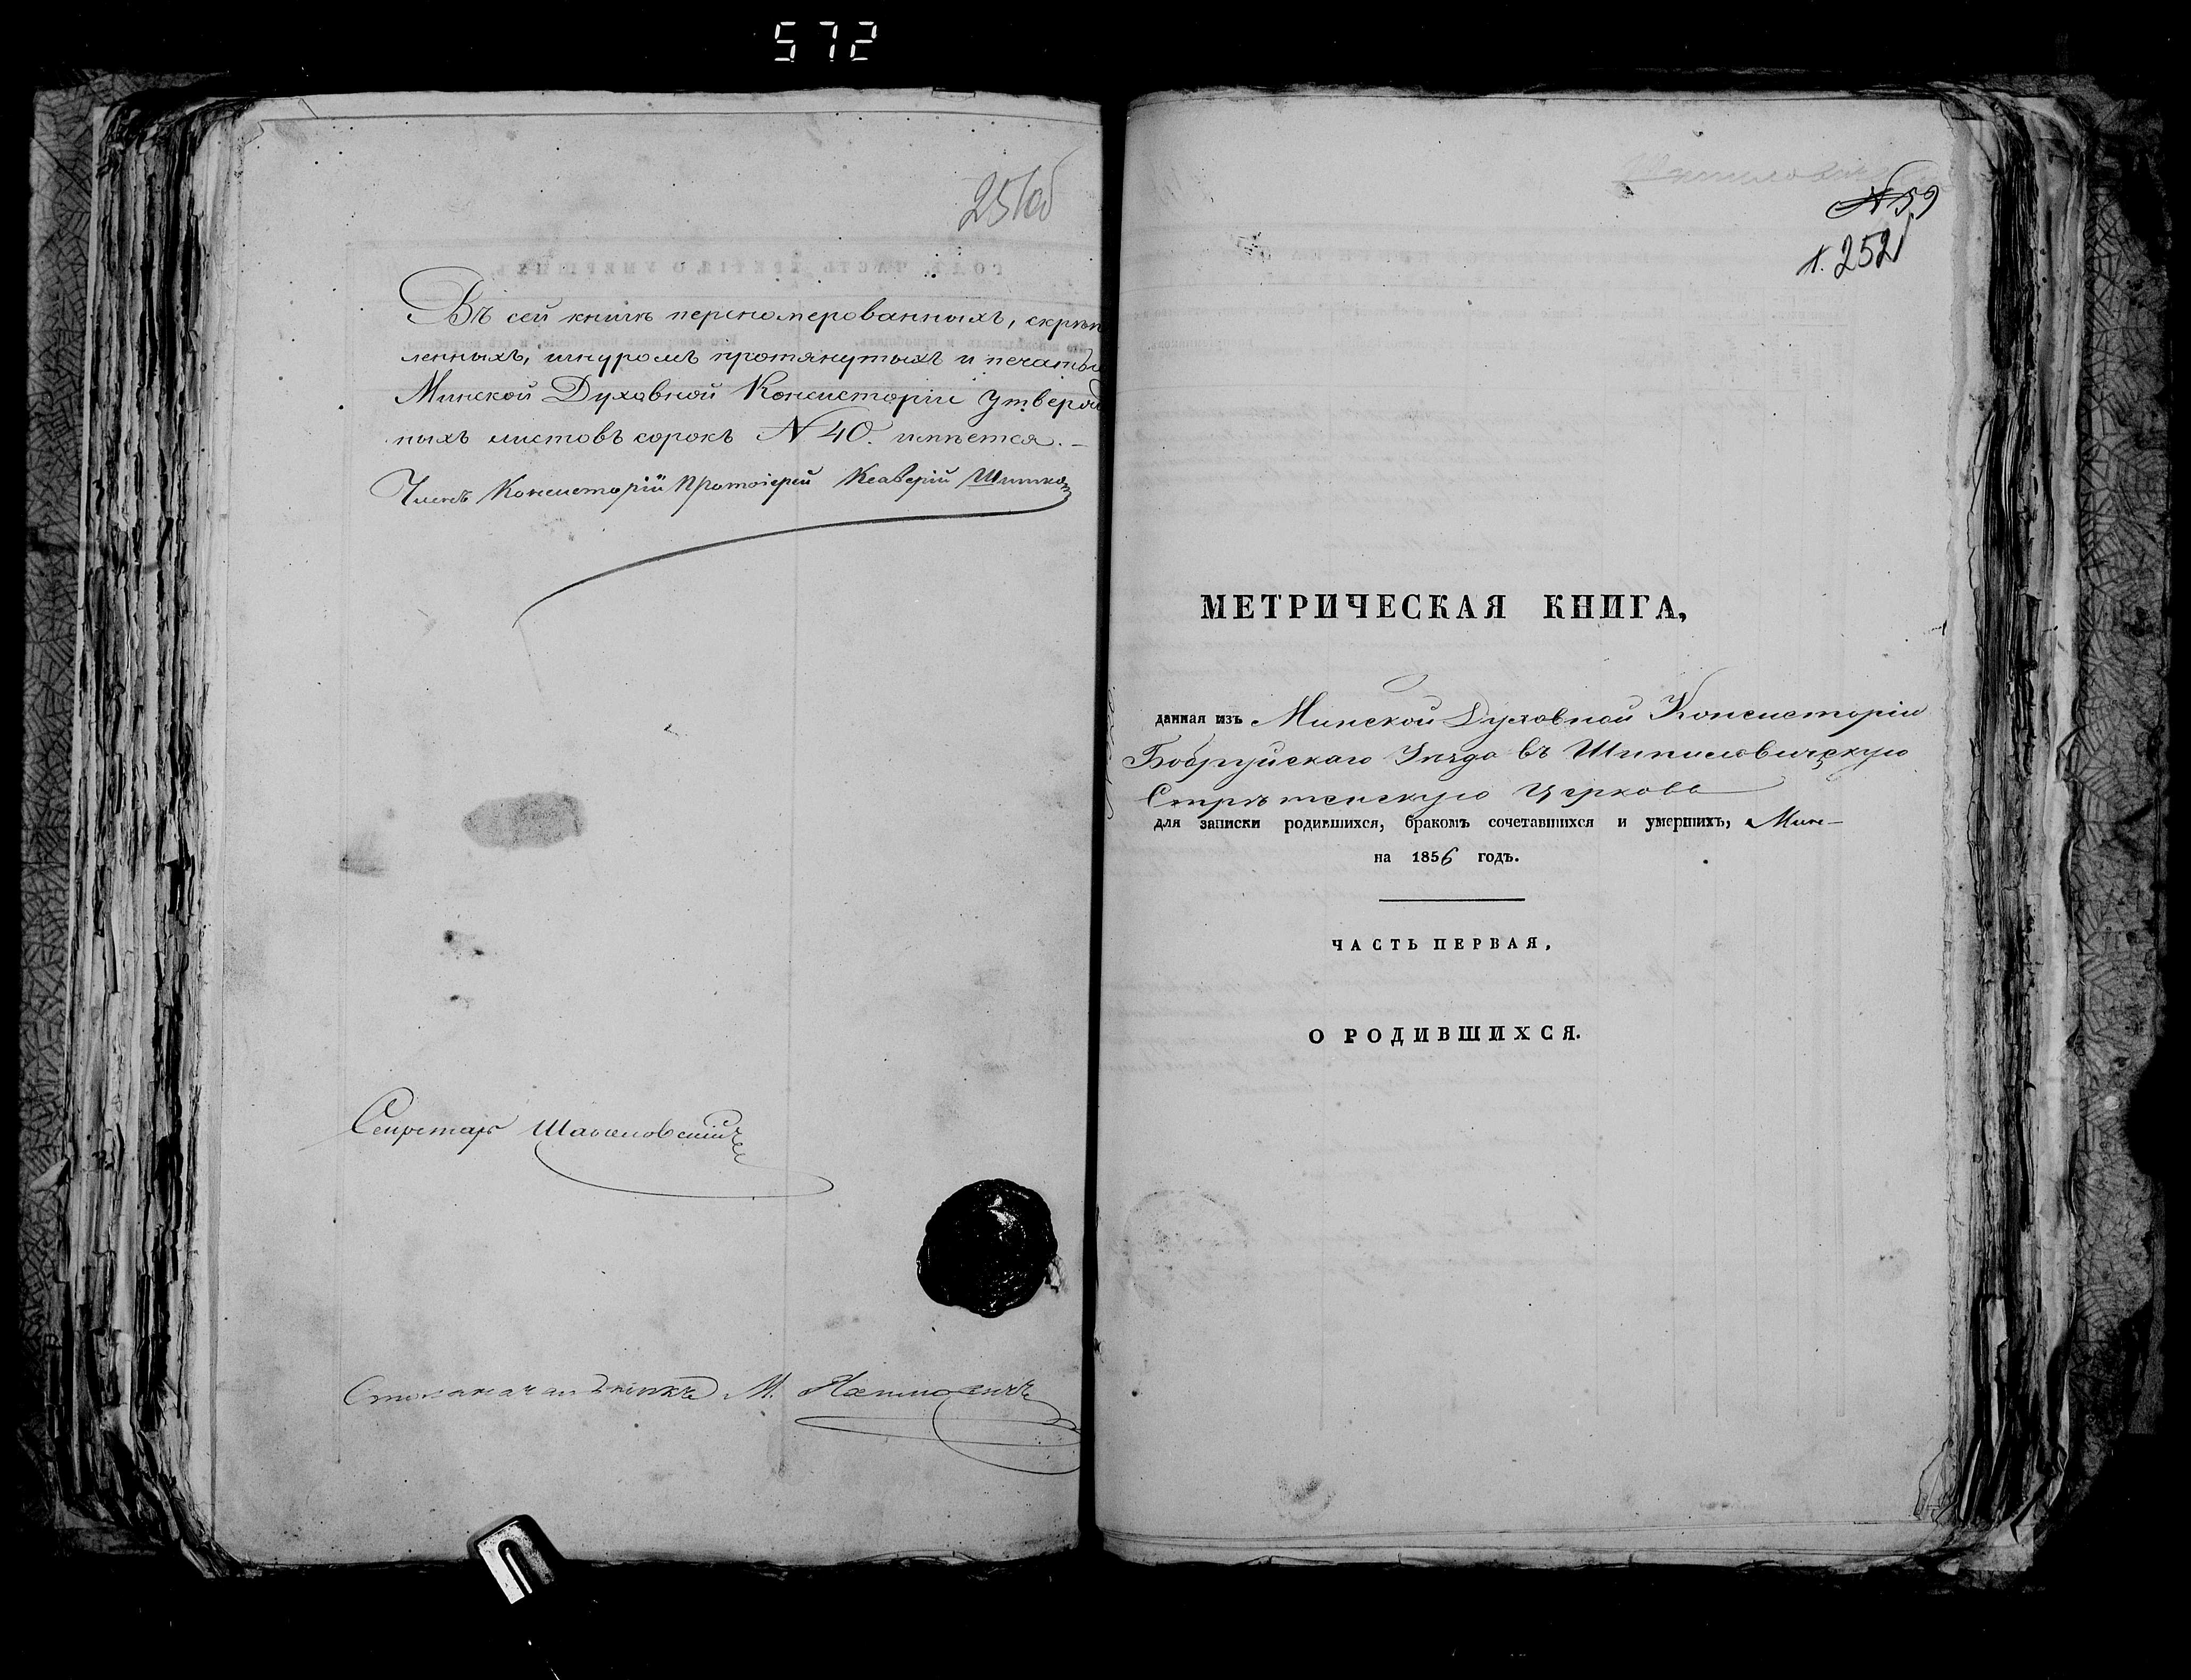 572
251об
Въ сей книгѣ перенумерованныхъ, скрѣп
ленныхъ, шнуромъ протянутыхъ и печатью
Минской Духовной Консисторіи утвержд
ныхъ листовъ сорокъ N 40. имѣется. –
Членъ Консисторіи Протоіерей Ксаверій
Секретарь
Столоначальникъ М.
N 59
л. 252
МЕТРИЧЕСКАЯ КНИГА,
данная изъ Минской Духовной Консисторіи
Бобруйскаго Уѣзда въ Шипиловичскую
Стрѣтенскую Церковь
для записки родившихся, бракомъ сочетавшихся и умершихъ,
на 1856 годъ.
ЧАСТЬ ПЕРВАЯ,
О РОДИВШИХСЯ.